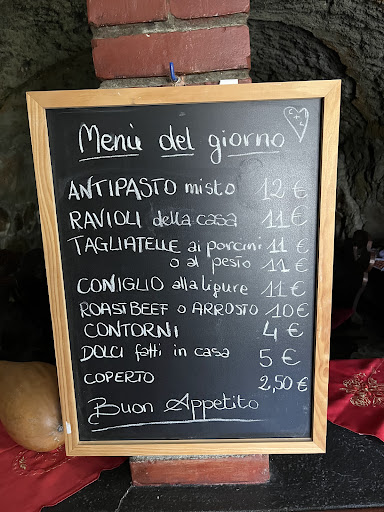 Menù del giorno
ANTIPASTO misto 12 €
RAVIOLI della casa 11 €
TAGLIATELLE ai porcini 11 €
o al pesto 11 €
CONIGLIO alla ligure 11 €
ROASTBEEF o ARROSTO 10 €
CONTORNI 4 €
DOLCI fatti in casa 5 €
COPERTO 2,50 €
Buon Appetito